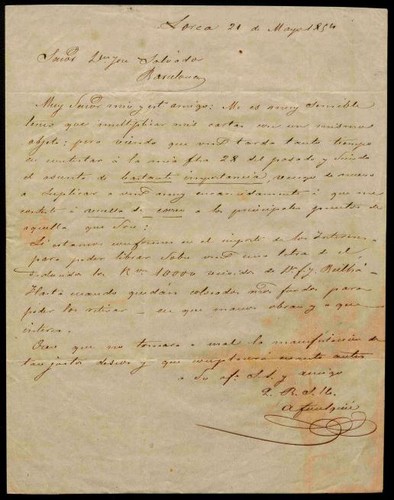 Lorca 21 de Mayo 1854
Señor Dn Jph Salvador
Barcelona
Muy Señor mio y est.º amigo: Me es muy sensible
tener que multiplicar mis cartas con un mismo
objeto; pero viendo que vmd tarda tanto tiempo
en contestar á la mia fha 28 del pasado y siendo
el asunto de bastante importancia, vengo de nuevo
a suplicar a vmd muy encarecidamente: que me
conteste á vuelta de correo a los principales
aquella que son:
Si estamos conformes en el importe de los
para poder librar sobre vmd una letra de el,
los Rvn 10000 de Dn
Hasta cuando quedan colocados fondos para
poder los retirar en que manos obran y a que
interes.
Creo que no tomara a mal la manifestacion de
tan justo deseo y que cuanto antes
a Su af.º S.S. y amigo
Q. B. S. M.